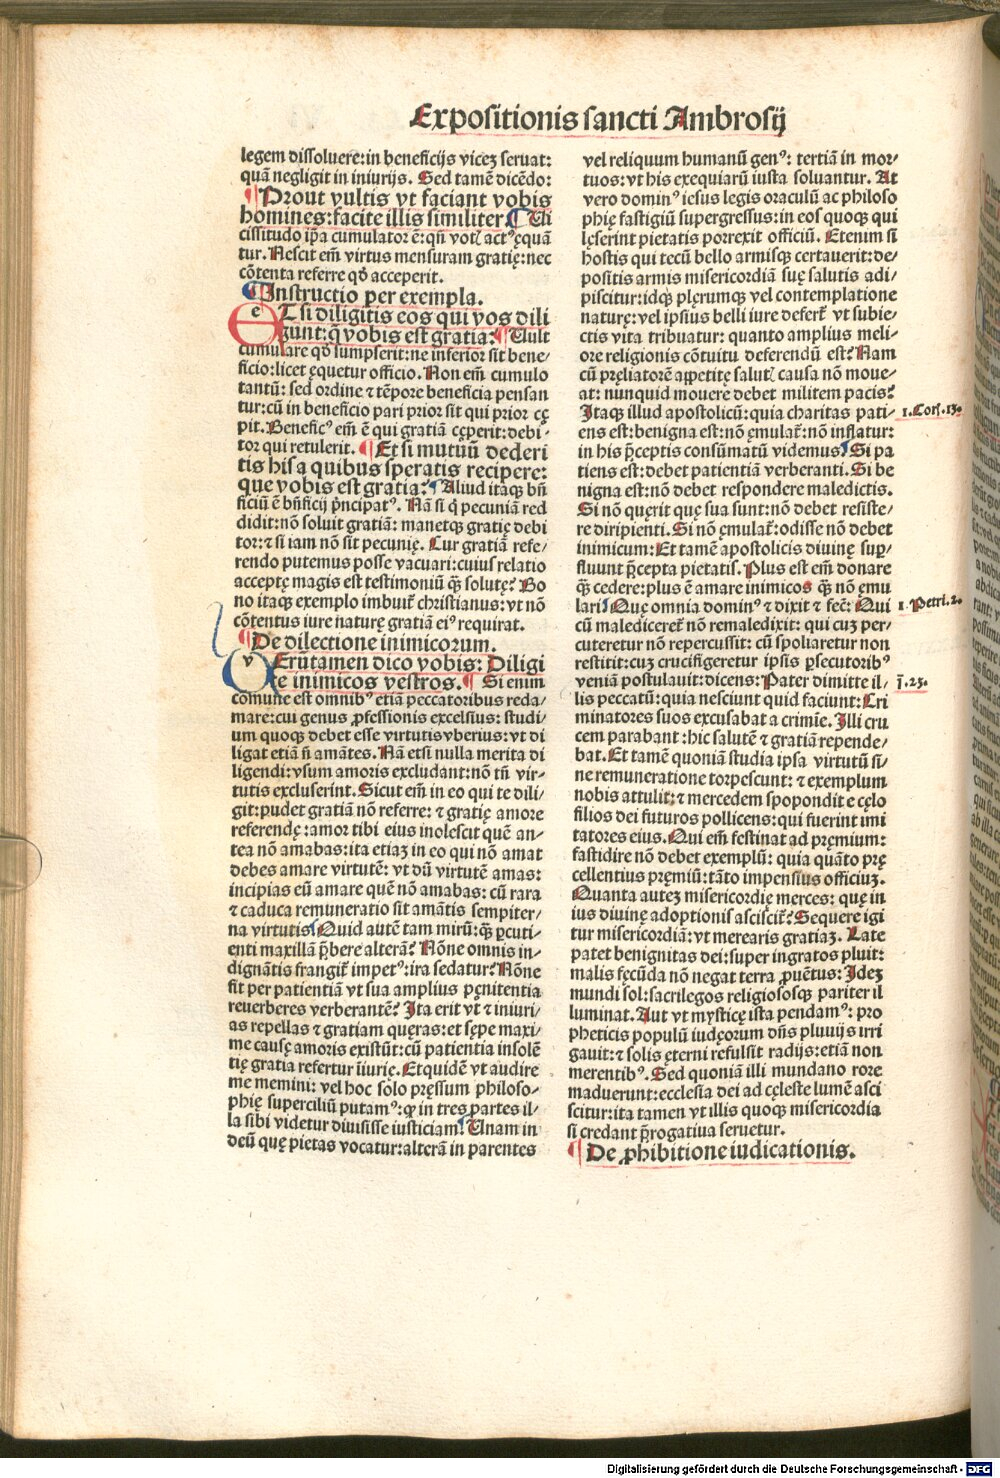 Expositionis sancti Ambrosij
legem dissoluere: in beneficijs vicez seruat:
quā negligit in iniurijs. Sed tamē dicēdo:
¶ Prout vultis vt faciant vobis
homines: facite illis similiter. ¶ Ui
cissitudo ip̄a cumulator ē: qn̄ votꝭ actꝰ ęqua
tur. Nescit em̄ virtus mensuram gratię: nec
cōtenta referre qđ acceperit.
¶ Instructio per exempla.
ET si diligitis eos qui vos dili
gunt: q̄ vobis est gratia? ¶ Uult
cumulare qđ sumpserit: ne inferior sit bene/
ficio: licet ęquetur officio. Non em̄ cumulo
tantū: sed ordine ⁊ tēpore beneficia pensan
tur: cū in beneficio pari prior sit qui prior cę
pit. Beneficꝰ em̄ ē qui gratiā cęperit: debi/
tor qui retulerit. ¶ Et si mutuū dederi
tis his a quibus speratis recipere:
que vobis est gratia? ¶ Aliud itaqꝫ bn̄
ficiū ē bn̄ficij pͥncipatꝰ. Nā si qͥ pecuniā red
didit: nō soluit gratiā: manetqꝫ gratię debi
tor: ⁊ si iam nō sit pecunię. Cur gratiā refe/
rendo putemus posse vacuari: cuius relatio
acceptę magis est testimoniū q̄ꝫ solutę? Bo
no itaqꝫ exemplo imbuit̄ christianus: vt nō
cōtentus iure naturę gratiā eiꝰ requirat.
¶ De dilectione inimicorum.
VErūtamen dico vobis: Diligi
te inimicos vestros. ¶ Si enim
comune est omnibꝰ etiā peccatoribus reda/
mare: cui genus ꝓfessionis excelsius: studi/
um quoqꝫ debet esse virtutis vberius: vt di
ligat etiā n̄ amātes. Nā etsi nulla merita di
ligendi: vsum amoris excludant: nō tn̄ vir/
tutis excluserint. Sicut em̄ in eo qui te dili/
git: pudet gratiā nō referre: ⁊ gratię amore
referendę: amor tibi eius inolescit quē an/
tea nō amabas: ita etiaz in eo qui nō amat
debes amare virtutē: vt dū virtutē amas:
incipias eū amare quē nō amabas: cū rara
⁊ caduca remuneratio sit amātis sempiter/
na virtutis. Quid autē tam mirū: q̄ꝫ ꝑcuti/
enti maxillā p̄bere alterā? Nōne omnis in/
dignātis frangit̄ impetꝰ: ira sedatur? Nōne
fit per patientiā vt sua amplius pęnitentia
reuerberes verberantē? Ita erit vt ⁊ iniuri/
as repellas ⁊ gratiam quęras: et sępe maxi/
me causę amoris existūt: cū patientia insolē
tię gratia refertur iiurię. Et quidē vt audire
me memini: vel hoc solo pręssum philoso/
phię superciliū putamꝰ: qꝙ in tres partes il/
la sibi videtur diuisisse iusticiam: Unam in
deū quę pietas vocatur: alterā in parentes
vel reliquum humanū genꝰ: tertiā in mor/
tuos: vt his exequiarū iusta soluantur. At
vero dominꝰ iesus legis oraculū ac philoso
phię fastigiū supergressus: in eos quoqꝫ qui
lęserint pietatis porrexit officiū. Etenim si
hostis qui tecū bello armisqꝫ certauerit: de/
positis armis misericordiā suę salutis adi/
piscitur: idqꝫ plęrumqꝫ vel contemplatione
naturę: vel ipsius belli iure defert̄ vt subie/
ctis vita tribuatur: quanto amplius meli/
ore religionis cōtuitu deferendū est? Nam
cū pręliatorē appetitę salutꝭ causa nō moue/
at: nunquid mouere debet militem pacis?
Itaqꝫ illud apostolicū: quia charitas pati/
ens est: benigna est: nō ęmulat̄: nō inflatur:
in his p̄ceptis consūmatū videmus. Si pa
tiens est: debet patientiā verberanti. Si be
nigna est: nō debet respondere maledictis.
Si nō quęrit quę sua sunt: nō debet resiste/
re diripienti. Si nō ęmulat̄: odisse nō debet
inimicum: Et tamē apostolicis diuinę suꝑ/
fluunt p̄cepta pietatis. Plus est em̄ donare
q̄ꝫ cedere: plus ē amare inimicos q̄ꝫ nō ęmu
lari. Quę omnia dominꝰ ⁊ dixit ⁊ fecit̄: Qui
cū malediceret̄ non remaledixit: qui cuz per/
cuteretur nō repercussit: cū spoliaretur non
restitit: cuz crucifigeretur ipsis ꝑsecutoribꝰ
veniā postulauit: dicens: Pater dimitte il/
lis peccatū: quia nesciunt quid faciunt: Cri
minatores suos excusabat a crimīe. Illi cru
cem parabant: hic salutē ⁊ gratiā repende/
bat. Et tamē quoniā studia ipsa virtutū si/
ne remuneratione torpescunt: ⁊ exemplum
nobis attulit: ⁊ mercedem spopondit e cęlo
filios dei futuros pollicens: qui fuerint imi
tatores eius. Qui em̄ festinat ad pręmium:
fastidire nō debet exemplū: quia quāto prę
cellentius pręmiū: tāto impensius officiuz.
Quanta autez misericordię merces: quę in
ius diuinę adoptionis asciscit̄? Sequere igi
tur misericordiā: vt merearis gratiaz. Late
patet benignitas dei: super ingratos pluit:
malis fęcūda nō negat terra ꝓuētus: Idez
mundi sol: sacrilegos religiososqꝫ pariter il
luminat. Aut vt mysticę ista pendamꝰ: pro
pheticis populū iudęorum dn̄s pluuijs irri
gauit: ⁊ solis ęterni refulsit radijs: etiā non
merentibꝰ. Sed quoniā illi mundano rore
maduerunt: ecclesia dei ad cęleste lumē asci
scitur: ita tamen vt illis quoqꝫ misericordia
si credant p̄rogatiua seruetur.
¶ De ꝓhibitione iudicationis.
1. Corī. 13.
1. Petri. 2.
j̄. 23.
Digitalisierung gefördert durch die Deutsche Forschungsgemeinschaft - DFG